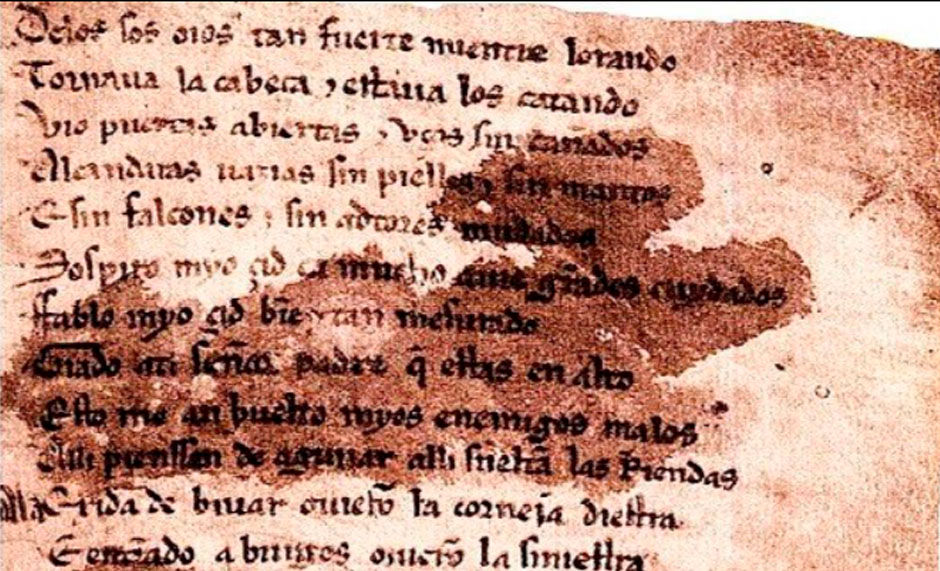 Delos sos oios tan fuerte mientre lorando
Tornaua la cabeça ⁊ estaua los catando
Vio puertas abiertas ⁊ vços sin cañados
Alcandaras uazias sin pielles ⁊ sin mantos
E sin falcones ⁊ sin adtores mudados
Sospiro myo çid ca mucho auie grãdes cuydados
ffablo myo çid biẽ ⁊ tan mesurado
Grado ati señor padre q̃ estas en alto
Esto me an buelto myos enemigos malos
Alli pienssan de aguijar alli sueltã las Riendas
ala Exida de biuar ouierõ la corneja diestra
E entrãdo a burgos ouierõ la siniestra